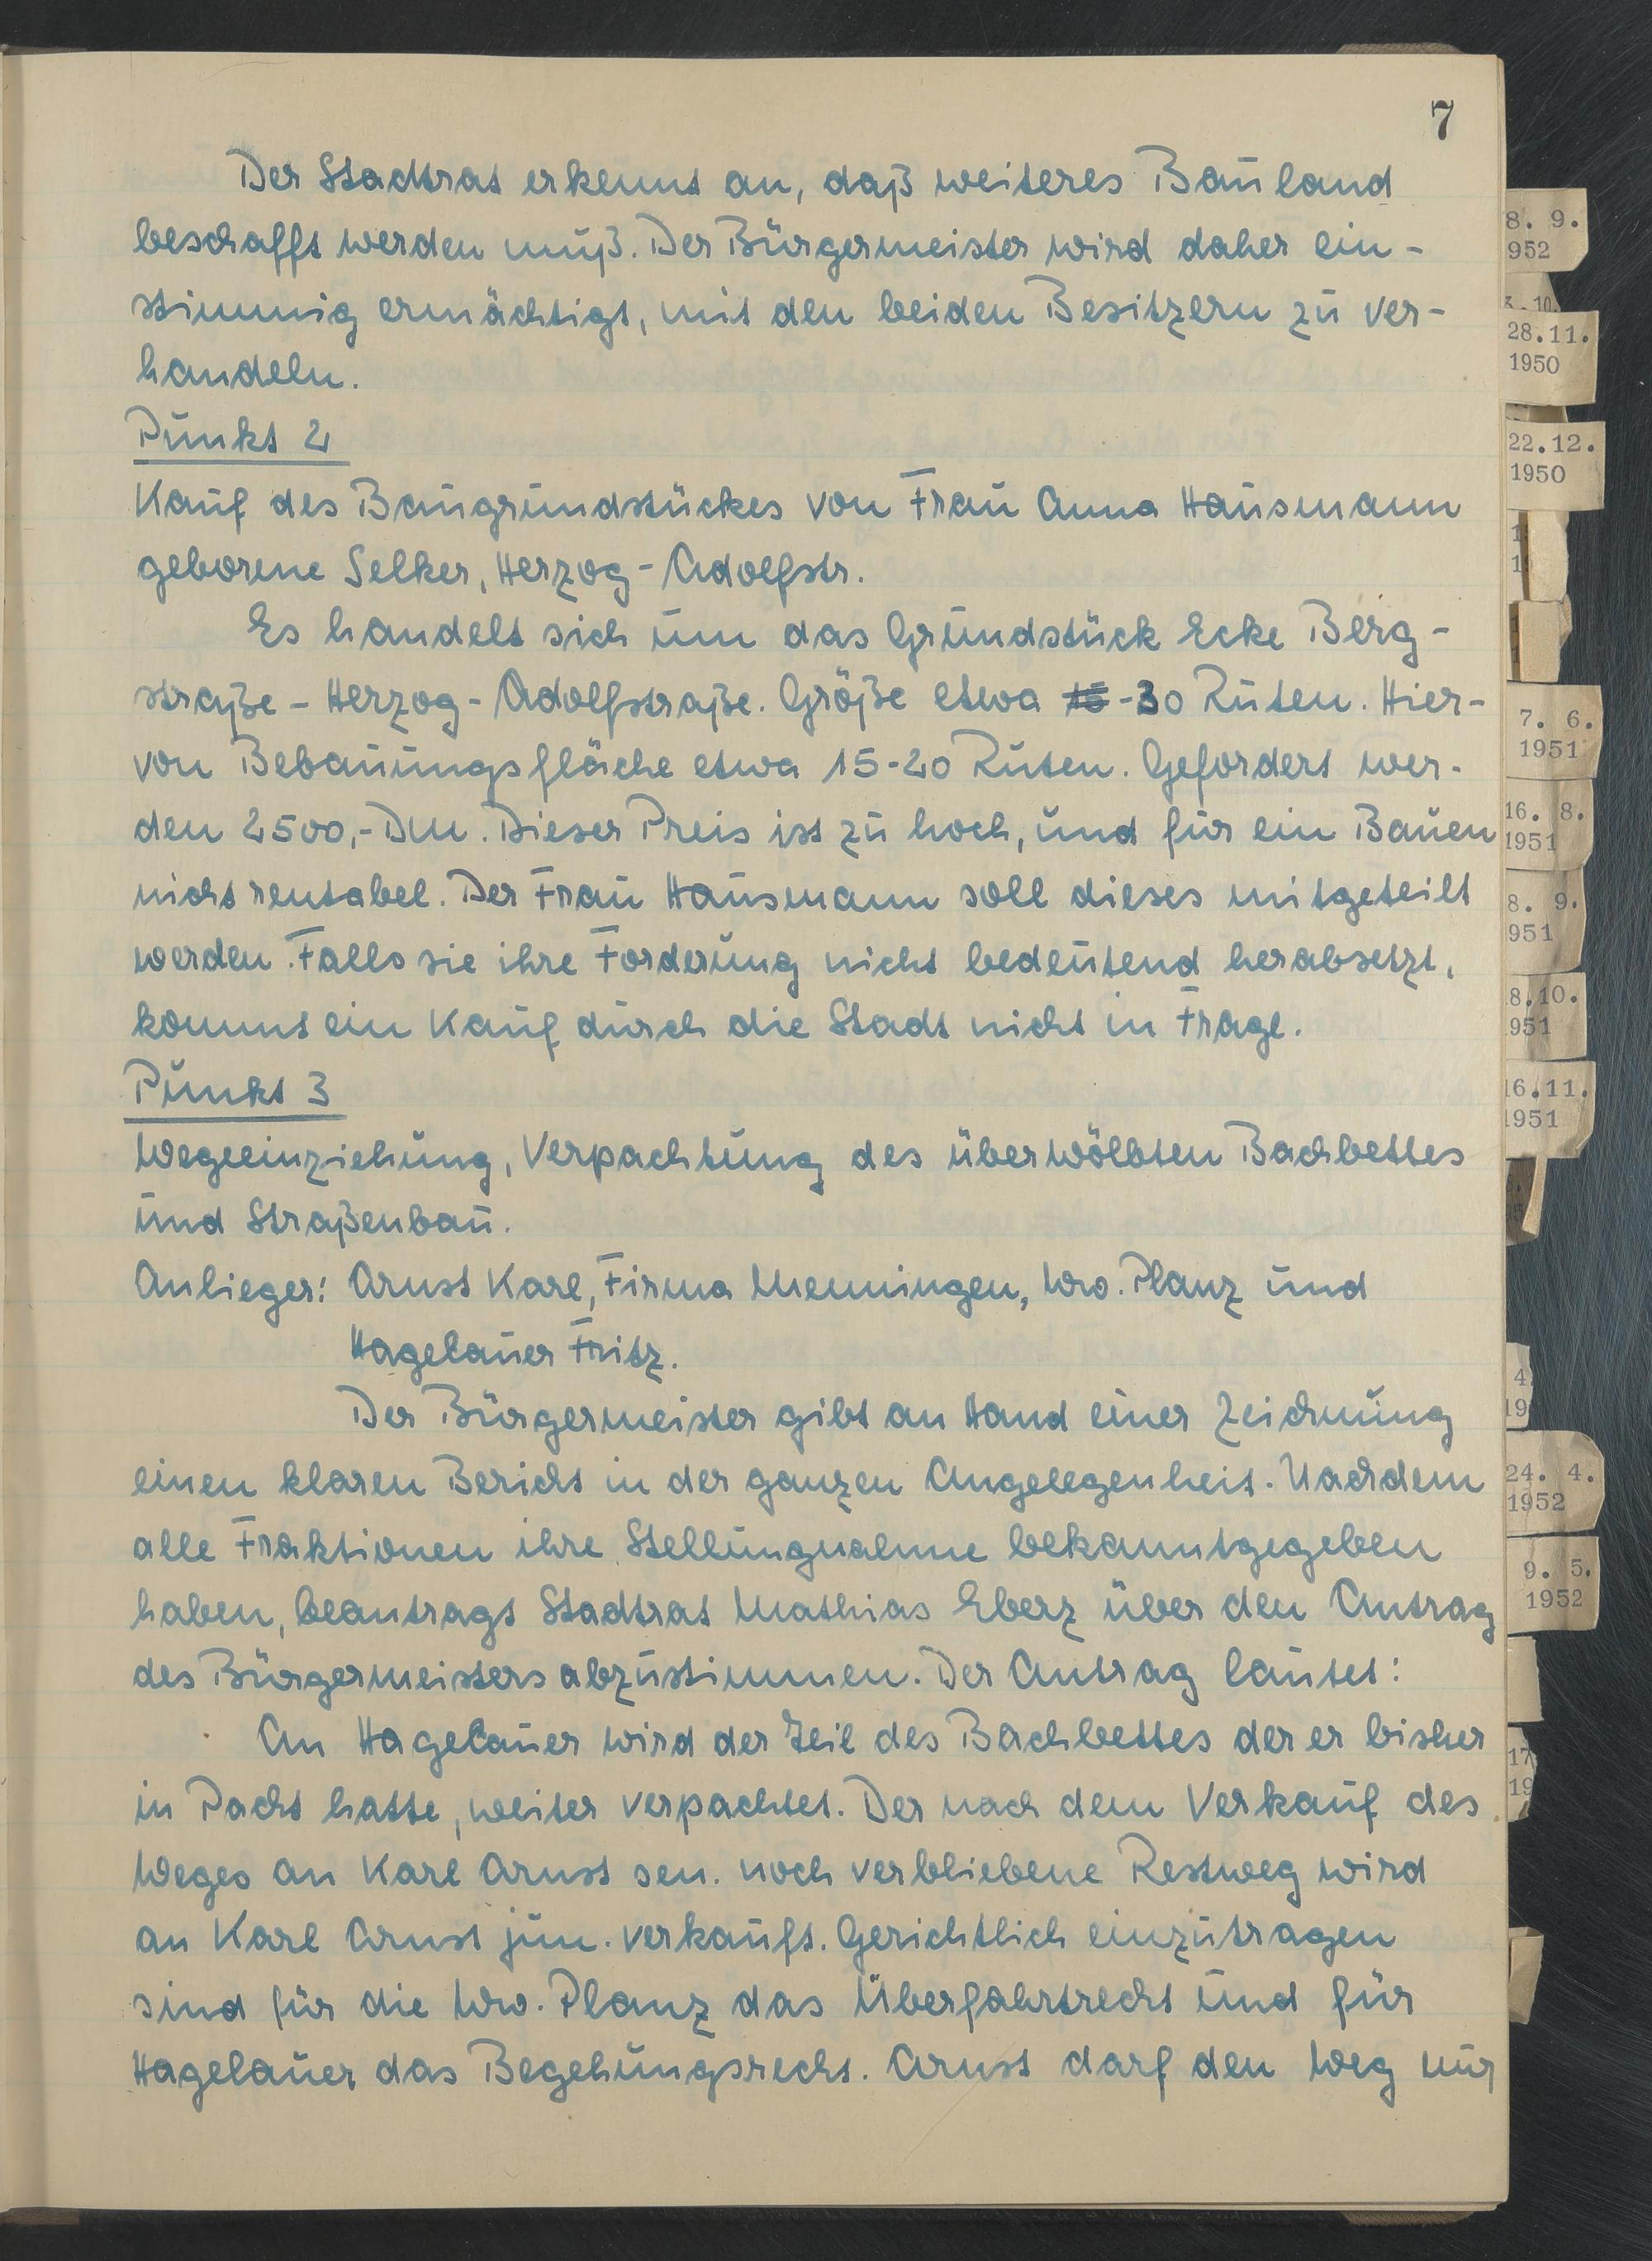 7
Der Stadtrat erkennt an, daß weiteres Bauland
beschafft werden muß. Der Bürgermeister wird daher ein-
stimmig ermächtigt, mit den beiden Besitzern zu ver-
handeln.
Punkt 2
Kauf des Baugrundstückes von Frau Anna Hausmann
geborene Selker, Herzog-Adolfstr.
Es handelt sich um das Grundstück Ecke Berg-
straße - Herzog-Adolfstraße. Größe etwa 15-30 Ruten. Hier-
von Bebauungsfläche etwa 15-20 Ruten. Gefordert wer-
den 2500,- DM. Dieser Preis ist zu hoch, und für ein Bauen
nicht rentabel. Der Frau Hausmann soll dieses mitgeteilt
werden. Falls sie ihre Forderung nicht bedeutend herabsetzt,
kommt ein Kauf durch die Stadt nicht in Frage.
Punkt 3
Wegeeinziehung, Verpachtung des überwölbten Bachbettes
und Straßenbau.
Anlieger: Arnst Karl, Firma Menningen, Ww. Planz und
Hagelauer Fritz.
Der Bürgermeister gibt an Hand einer Zeichnung
einen klaren Bericht in der ganzen Angelegenheit. Nachdem
alle Fraktionen ihre Stellungnahme bekanntgegeben
haben, beantragt Stadtrat Mathias Eberz über den Antrag
des Bürgermeisters abzustimmen. Der Antrag lautet:
An Hagelauer wird der Teil des Bachbettes der er bisher
in Pacht hatte, weiter verpachtet. Der nach dem Verkauf des
Weges an Karl Arnst sen. noch verbliebene Restweg wird
an Karl Arnst jun. verkauft. Gerichtlich einzutragen
sind für die Ww. Planz das Überfahrtrecht und für
Hagelauer das Begehungsrecht. Arnst darf den Weg nur
8. 9.
952
28.11.
1950
22.12.
1950
7. 6.
1951
16. 8.
1951
8. 9.
951
8.10.
951
16.11.
1951
4
19
24. 4.
1952
9. 5.
1952
17
19